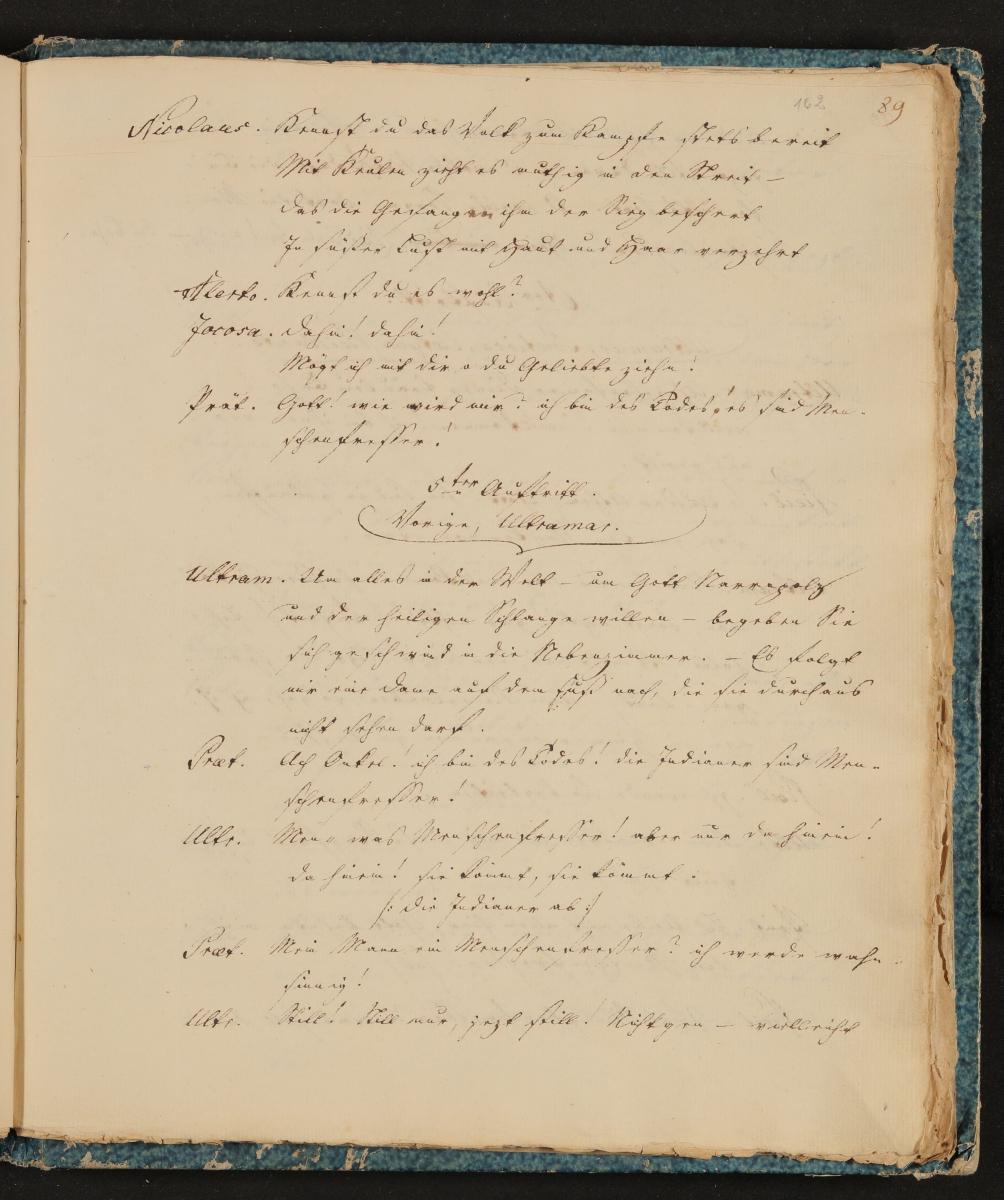 162 89
Nicolaus. Kennst du das Volk zum Kampfe stets bereit
Mit Keulen zieht es muthig in den Streit –
das die Gefangnen ihm der Sieg beschert
In süßer Lust mit Haut und Haar verzehrt
Alerto. Kennst du es wohl?
Jocosa. dahin! dahin!
Mögt ich mit dir o du Geliebte ziehn!
Prät. Gott! wie wird mir? ich bin des Todes! es sind Men-
schenfresser!
5ter Auftritt.
Vorige, Ultramar.
Ultram. Um alles in der Welt – um Gott
und der heiligen Schlange willen – begeben Sie
sich geschwind in die Nebenzimmer. – Es folgt
mir eine Dame auf dem Fuß nach, die sie durchaus
nicht sehen darf.
Præt. Ach Onkel! ich bin des Todes! die Indianer sind Men-
schenfresser!
Ultr. Men- was Menschenfresser! aber nur da hinein!
da hinein! sie kömmt, sie kömmt.
/: die Indianer ab :/
Præt. Mein Mann ein Menschenfresser? ich werde wahn-
sinnig!
Ultr. Still! Still nur, jezt still! Nichtgen – vielleicht